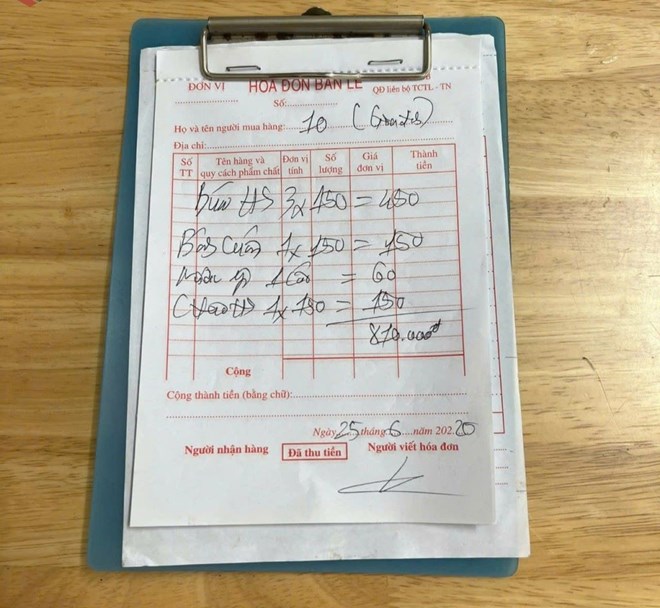 ĐƠN VỊ HOÁ ĐƠN BÁN LẺ
QĐ liên bộ TCTL - TN
Số:
Họ và tên người mua hàng: 10
Địa chỉ:
Số TT Tên hàng và quy cách phẩm chất Đơn vị tính Số lượng Giá đơn vị Thành tiền
Bún HS 3 x 150 = 450
Bánh Cuốn 1 x 150 = 150
= 60
1 x 150 = 150
810.000đ
Cộng
Cộng thành tiền (bằng chữ):
Ngày 25 tháng 6 năm 202 20
Người nhận hàng Đã thu tiền Người viết hóa đơn